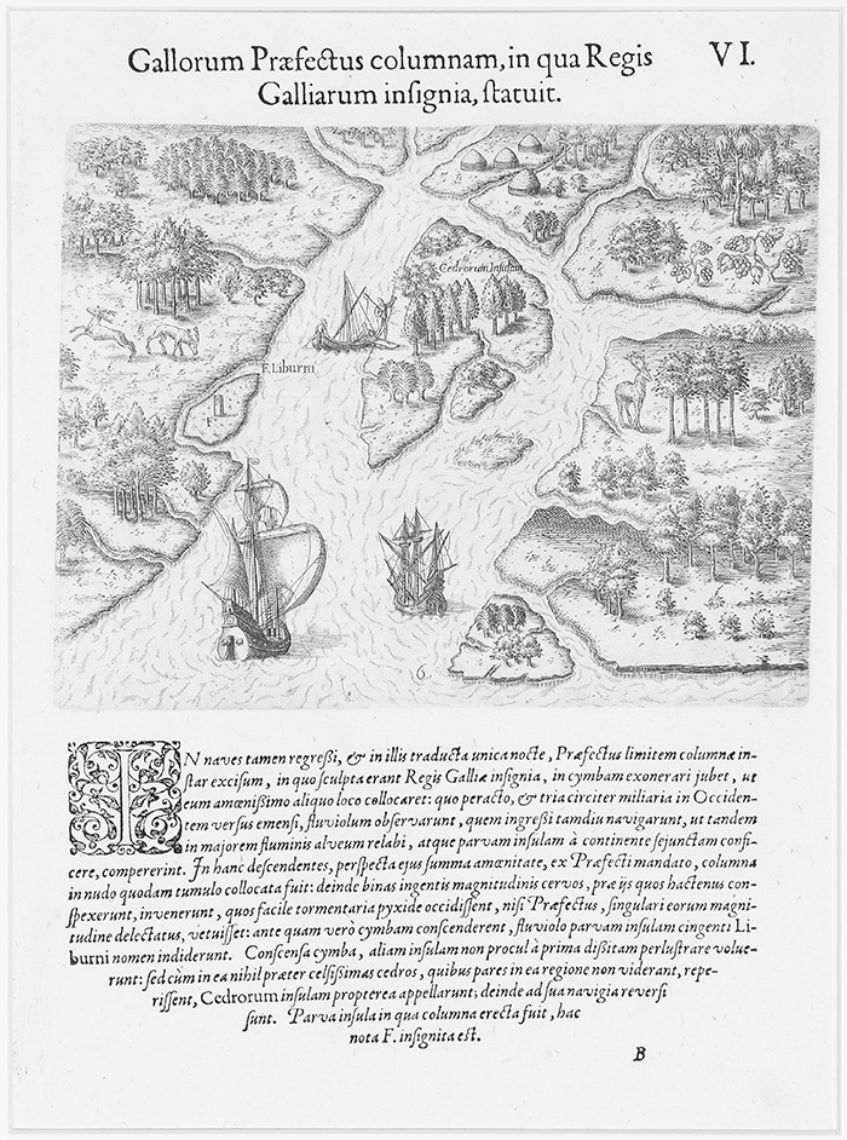 Gallorum Præfectus columnam, in qua Regis VI.
Galliarum inſignia, ſtatuit.
Cedrorum Inſulam
F. Liburni
F
6
IN naves tamen regreßi, & in illis traducta unica nocte, Præfectus limitem columnæ in-
ſtar exciſum, in quo ſculpta erant Regis Galliæ inſignia, in cymbam exonerari jubet, ut
eum amœnißimo aliquo loco collocaret: quo peracto, & tria circiter miliaria in Occiden-
tem verſus emenſi, fluviolum obſervarunt, quem ingreßi tamdiu navigarunt, ut tandem
in majorem fluminis alveum relabi, atque parvam inſulam à continente ſejunctam confi-
cere, compererint. In hanc deſcendentes, perſpecta ejus ſumma amœnitate, ex Præfecti mandato, columna
in nudo quodam tumulo collocata fuit: deinde binas ingentis magnitudinis cervos, præ ijs quos hactenus con-
ſpexerunt, invenerunt, quos facile tormentaria pyxide occidiſſent, niſi Præfectus, ſingulari eorum magni-
tudine delectatus, vetuiſſet: ante quam verò cymbam conſcenderent, fluviolo parvam inſulam cingenti Li-
burni nomen indiderunt. Conſcenſa cymba, aliam inſulam non procul à prima dißitam perluſtrare volue-
runt: ſed cùm in ea nihil præter celſißimas cedros, quibus pares in ea regione non viderant, repe-
riſſent, Cedrorum inſulam propterea appellarunt; deinde ad ſua navigia reverſi
ſunt. Parva inſula in qua columna erecta fuit, hac
nota F. inſignita est.
B